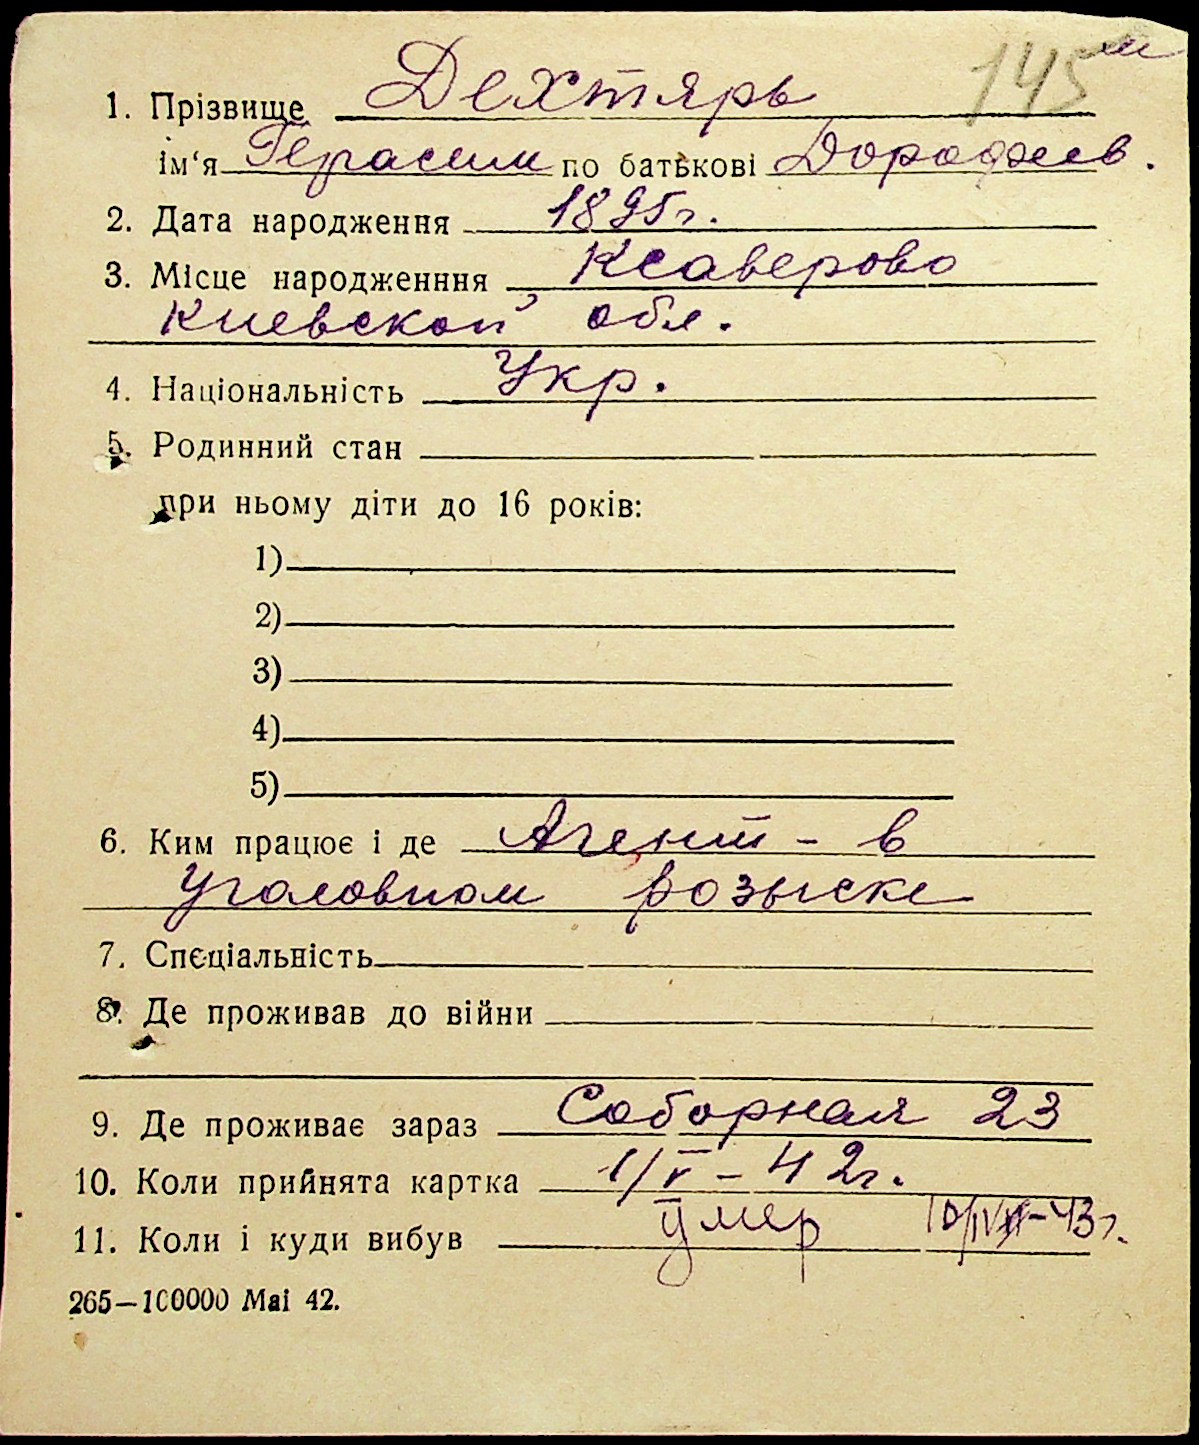 145 м
1. Прізвище Дехтярь
ім‘я Герасим по батькові Дорофеев.
2. Дата народження 1895г.
3. Місце народженння Ксаверово
Киевской обл.
4. Національність Укр.
5. Родинний стан
при ньому діти до 16 років:
1)
2)
3)
4)
5)
6. Ким працює і де Агент - в
Уголовном розыске
7. Спєціальність
8. Де проживав до війни
9. Де проживає зараз Соборная 23
10. Коли прийнята картка 1/V - 42г.
11. Коли і куди вибув умер 10/IV-43г.
265—100000 Mai 42.